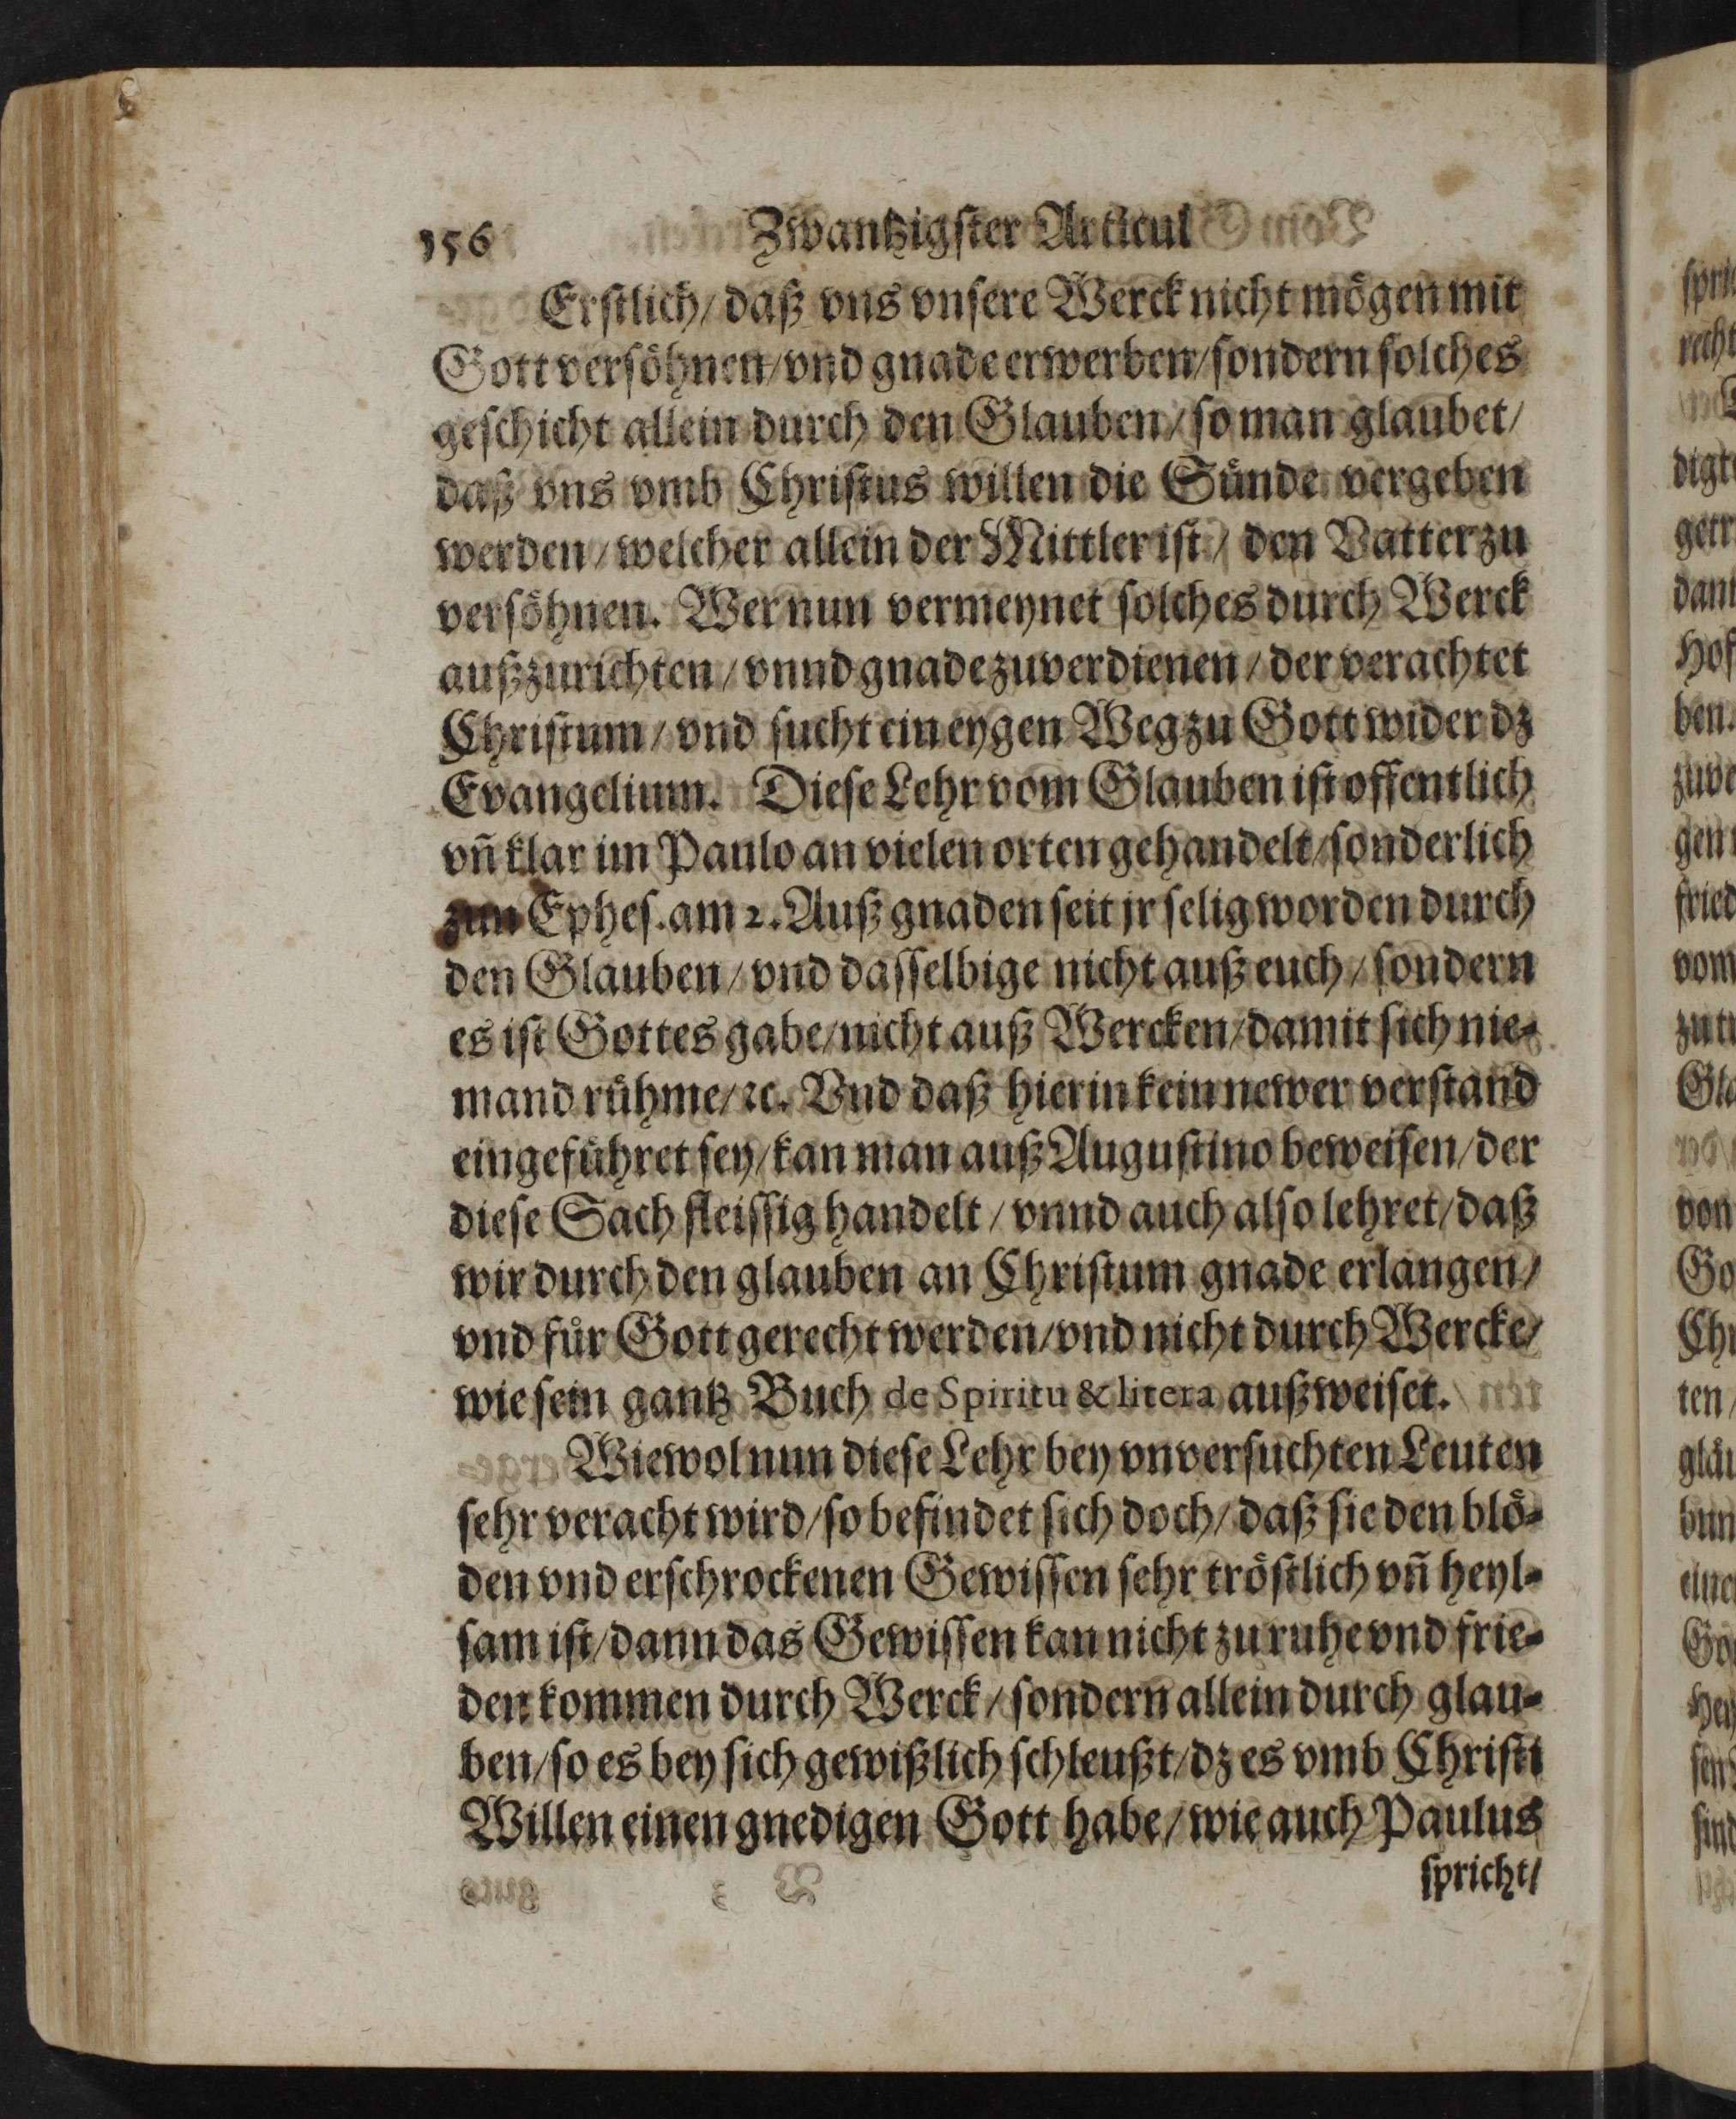 156 Zwantzigster Articul
Erstlich/ daß vns vnsere Werck nicht mögen mit
Gott versöhnen/ vnd gnade erwerben/ sondern solches
geschicht allein durch den Glauben/ so man glaubet/
daß vns vmb Christus willen die Sünde vergeben
werden/ welcher allein der Mittler ist/ den Vatter zu
versöhnen. Wer nun vermeynet solches durch Werck
außzurichten/ vnnd gnade zuverdienen/ der verachtet
Christum/ vnd sucht ein eygen Weg zu Gott wider dz
Evangelium. Diese Lehr vom Glauben ist offentlich
vñ klar im Paulo an vielen orten gehandelt/ sonderlich
zun Ephes. am 2. Auß gnaden seit jr selig worden durch
den Glauben/ vnd dasselbige nicht auß euch/ sondern
es ist Gottes gabe/ nicht auß Wercken/ damit sich nie-
mand rühme/ ꝛc. Vnd daß hierin kein newer verstand
eingeführet sey/ kan man auß Augustino beweisen/ der
diese Sach fleissig handelt/ vnnd auch also lehret/ daß
wir durch den glauben an Christum gnade erlangen/
vnd für Gott gerecht werden/ vnd nicht durch Wercke/
wie sein gantz Buch de Spiritu & litera außweiset.
Wiewol nun diese Lehr bey vnversuchten Leuten
sehr veracht wird/ so befindet sich doch/ daß sie den blö-
den vnd erschrockenen Gewissen sehr tröstlich vñ heyl-
sam ist/ dann das Gewissen kan nicht zu ruhe vnd frie-
den kommen durch Werck/ sondern allein durch glau-
ben/ so es bey sich gewißlich schleußt/ dz es vmb Christi
Willen einen gnedigen Gott habe/ wie auch Paulus
spricht/